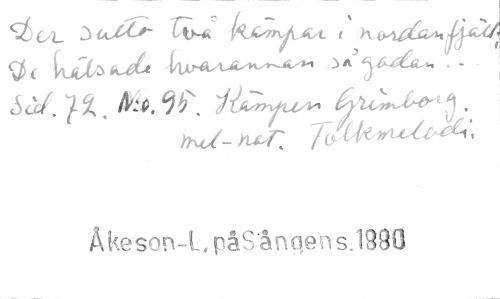 Der sutto två kämpar i nordanfjäll,
De hälsade hvarannan så godan...
Sid. 72. No. 95. Kämpen Grimborg.
mel-not. Folkmelodi.
Åkeson-L, påSångens.1880